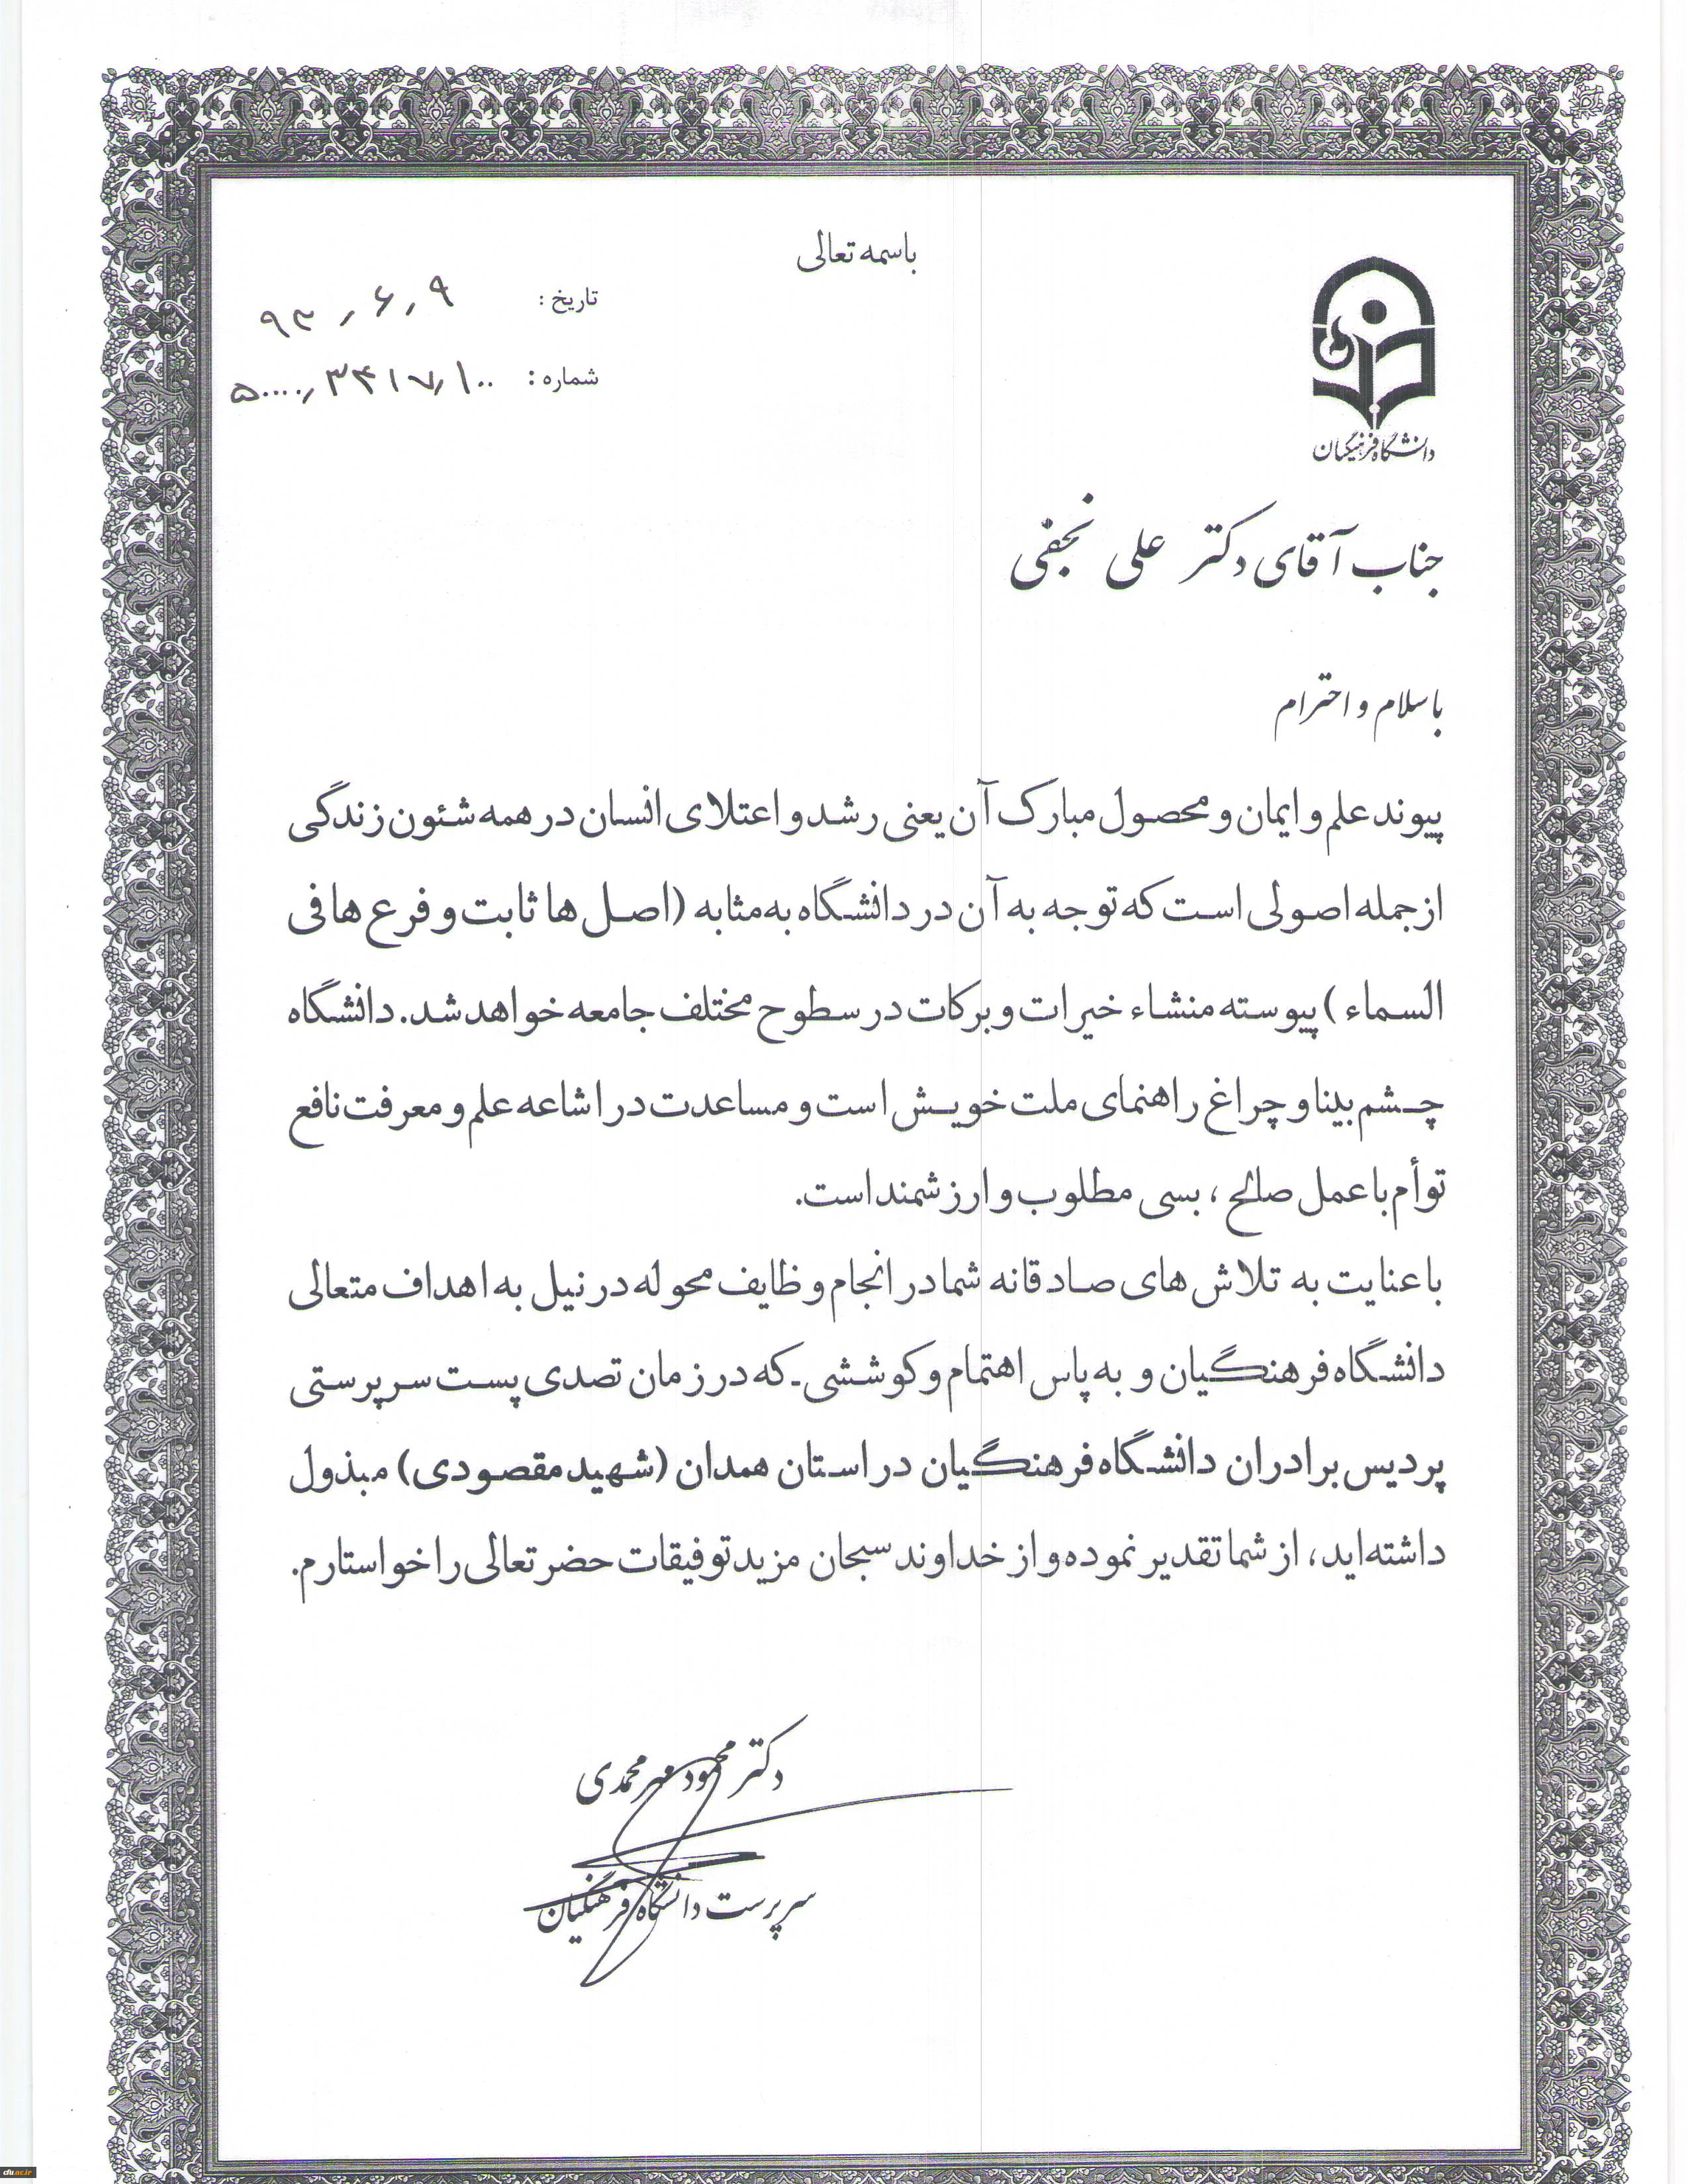 باسمه تعالی
تاریخ : ۹۳٫۶٫۹
شماره : ۵۰۰۰۰٫۳۴۱۷٫۱۰۰
دانشگاه فرهنگیان
جناب آقای دکتر علی نجفی
با سلام و احترام
پیوند علم و ایمان و محصول مبارک آن یعنی رشد و اعتلای انسان در همه شئون زندگی
از جمله اصولی است که توجه به آن در دانشگاه به مثابه (اصل ها ثابت و فرع ها فی
السماء ) پیوسته منشاء خیرات و برکات در سطوح مختلف جامعه خواهد شد. دانشگاه
چشم بینا و چراغ راهنمای ملت خویش است و مساعدت در اشاعه علم و معرفت نافع
توأم با عمل صالح ، بسی مطلوب و ارزشمند است.
با عنایت به تلاش های صادقانه شما در انجام وظایف محوله در نیل به اهداف متعالی
دانشگاه فرهنگیان و به پاس اهتمام و کوششی - که در زمان تصدی پست سرپرستی
پردیس برادران دانشگاه فرهنگیان در استان همدان (شهید مقصودی) مبذول
داشته اید، از شما تقدیر نموده و از خداوند سبحان مزید توفیقات حضرتعالی را خواستارم.
دکتر محمود مهرمحمدی
سرپرست دانشگاه فرهنگیان
cfu.ac.ir